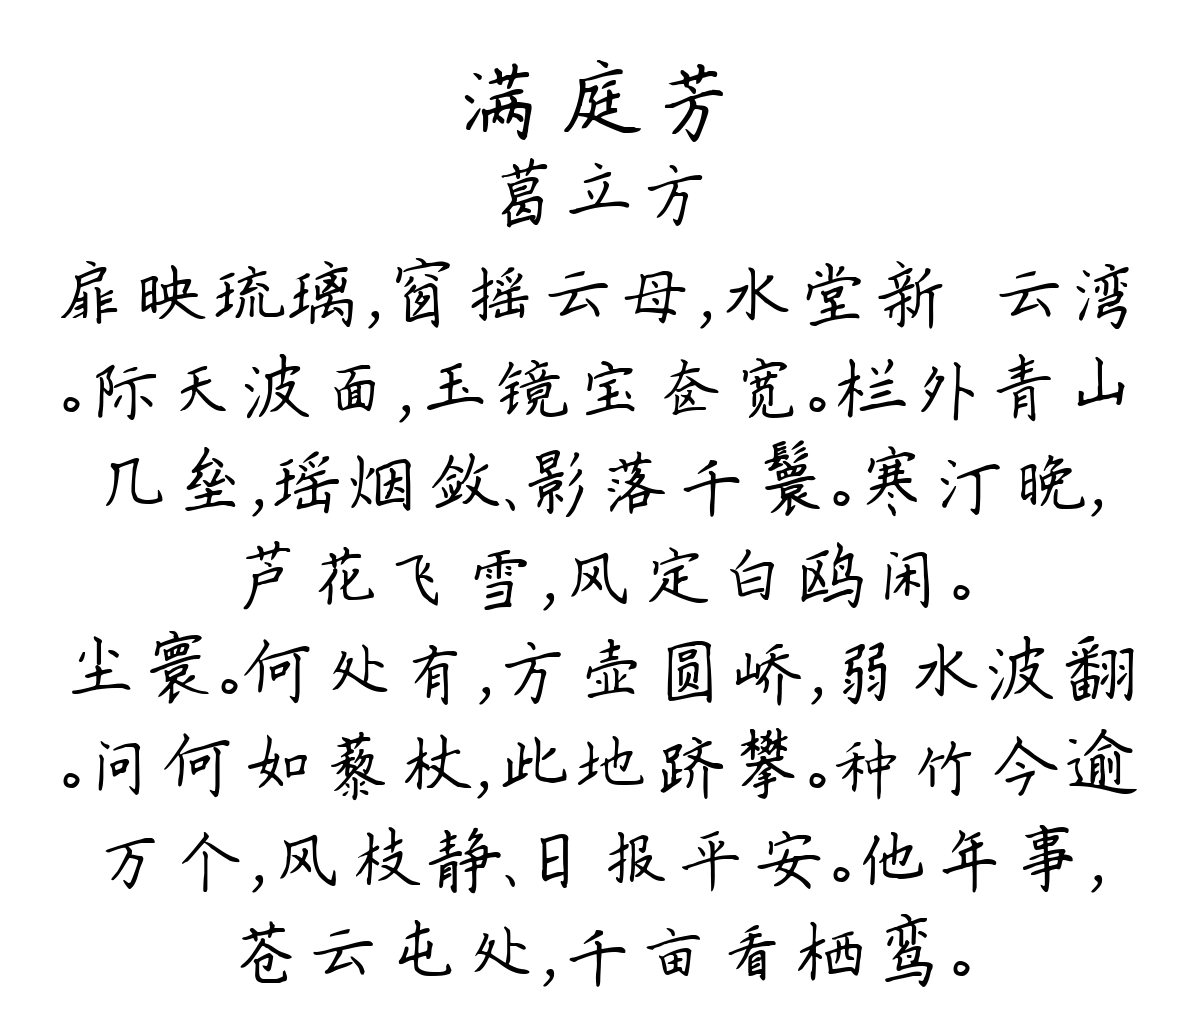 满庭芳
葛立方
扉映琉璃,窗摇云母,水堂新 云湾
。际天波面,玉镜宝奁宽。栏外青山
几垒,瑶烟敛、影落千鬟。寒汀晚,
芦花飞雪,风定白鸥闲。
尘寰。何处有,方壶圆峤,弱水波翻
。问何如藜杖,此地跻攀。种竹今逾
万个,风枝静、日报平安。他年事,
苍云屯处,千亩看栖鸾。